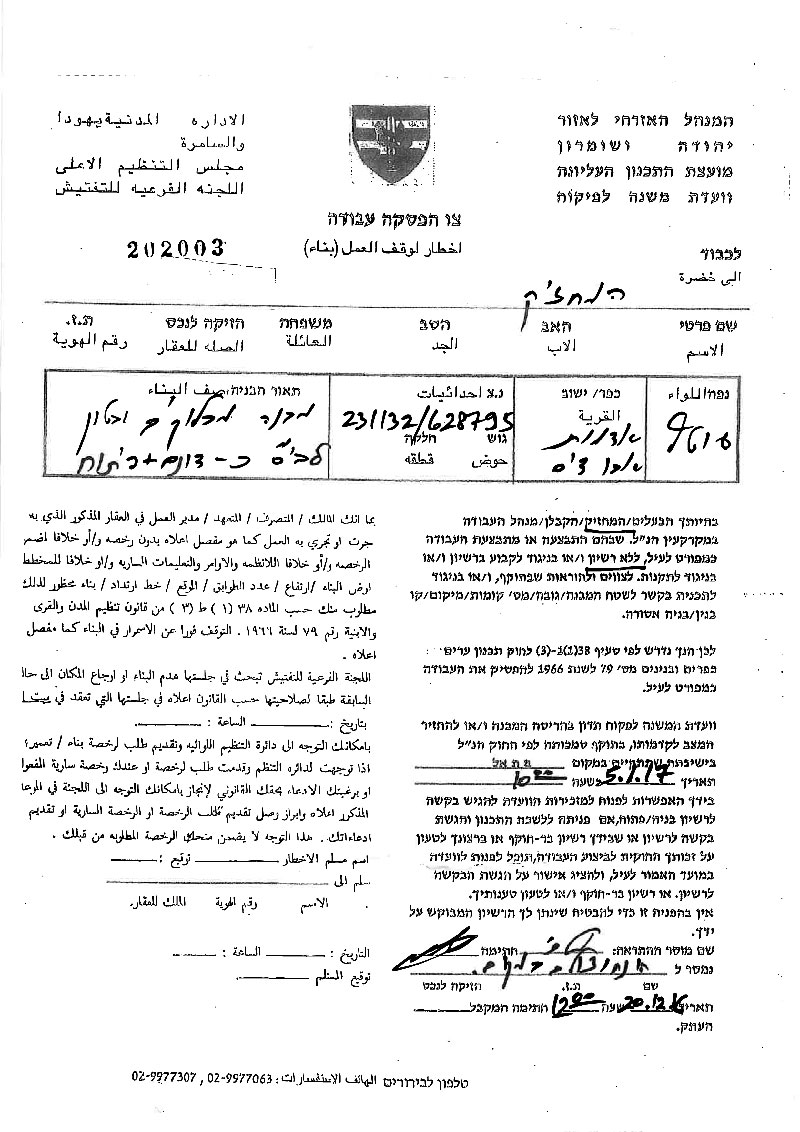 המנהל האזרחי לאזור
יהודה ושומרון
מועצת התכנון העליונה
וועדת משנה לפיקוח
الاداره المدنية يهودا
والسامرة
مجلس التنظيم الاعلى
اللجنه الفرعيه للتفتيش
צו הפסקה עבודה
اخطار لوقف العمل (بناء)
202003
לכבוד
الى حضرة
המחזיק
שם פרטי האב הסב משפחה הזיקה לנכס ת.ז.
الاسم الاب الجد العائلة الصله للعقار رقم الهوية
נפה/اللواء כפר/ ישוב נ.צ احداثيات תאור הבניה/وصف البناء
القرية 231132/628795 מבנה
גוש חלקה
حوض قطعه
אבו דיס
בהיותך הבעלים/המחזיק/הקבלן/מנהל העבודה
במקרקעין הנ״ל, שבהם התבצעה או מתבצעת העבודה
כמפורט לעיל, ללא רשיון ו/או בניגוד לקבוע ברשיון ו/או
בניגוד לתקנות. לצווים ולהוראות שבתוקף, ו/או בניגוד
לתכנית בקשר לשטח המבנה/גובה/מס׳ קומות/מיקום/קו
בנין/בניה אסורה.
לכן הנך נדרש לפי סעיף 38(1)-(3) לחוק תכנון ערים
כפרים ובנינים מס׳ 79 לשנת 1966 להפסיק את העבודה
כמפורט לעיל.
וועדת המשנה לפקוח תדון בהריסת המבנה ו/או להחזיר
המצב לקדמותו, בתוקף סמכותה לפי החוק הנ״ל
בישיבתה שתתקיים במקום בית אל
תאריך 5.1.17 בשעה 10 00
בידך האפשרות לפנות למזכירות הוועדה להגיש בקשה
לרשיון בניה/פתוח, אם פניתה ללשכת התכנון והגשת
בקשה לרשיון או שבידך רשיון בר-תוקף או ברצונך לטעון
על זכותך החוקית לביצוע העבודה, תוכל לפנות לוועדה
במועד האמור לעיל, ולהציג אישור על הגשת הבקשה
לרשיון. או רשיון בר-תוקף ו/או לטעון טענותיך.
אין בהפניה זו כדי להבטיח שינתן לך הרשיון המבוקש על
ידך.
שם מוסר ההתראה: חתימה
נמסר ל
שם ת.ז. הזיקה לנכס
תאריך 20.12.16 שעה 12 00 חתימה המקבל
העתק.
بما انك المالك / المتصرف / المتعهد / مدير العمل في العقار المذكور الذي به
جرت او تجري به العمل كما هو مفصل اعلاه بدون رخصه و/أو خلافا
الرخصه و/أو خلافا للانظمه والاوامر والتعليمات الساريه و/او خلافا للمخطط
ارض البناء /ارتفاع / عدد الطوابق / الموقع / خط ارتداد / بناء محظور لذلك
مطلوب منك حسب الماده ٣٨ (١) ط (٣) من قانون تنظيم المدن والقرى
والابنية رقم ٧٩ لسنة ١٩٦٦ . التوقف فورا عن الاسمرار في البناء كما مفصل
اعلاه .
اللجنة الفرعية للتفتيش تبحث في جلستها هدم البناء او ارجاع المكان الى
السابقة طبقا لصلاحيتها حسب القانون اعلاه في جلستها التي تعقد في
بتاريخ : الساعة :
بامكانك التوجه الى دائرة التنظيم اللوائيه وتقديم طلب لرخصة بناء /
اذا توجهت لدائره التنظم وقدمت طلب لرخصة او عندك رخصة سارية
او برغبتك الادعاء بحقك القانوني لإنجاز بامكانك التوجه الى اللجنة في
المذكور اعلاه وابراز وصل تقديم طلب الرخصة او الرخصة السارية او تقديم
ادعاءاتك . هذا التوجه لا يضمن منحك الرخصة المطلوبه من قبلك .
اسم مسلم الاخطار توقيع :
سلم الى
الاسم رقم الهوية المالك للعقار.
التاريخ : الساعة :
توقيع المستلم
טלפון לבירורים الهاتف الاستفسارات : 02-9977063 , 02-9977307